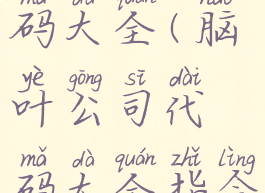 mǎ dà quán nǎo
码大全(脑
yè gōng sī dài
叶公司代
mǎ dà quán zhǐ lìng
码大全指令